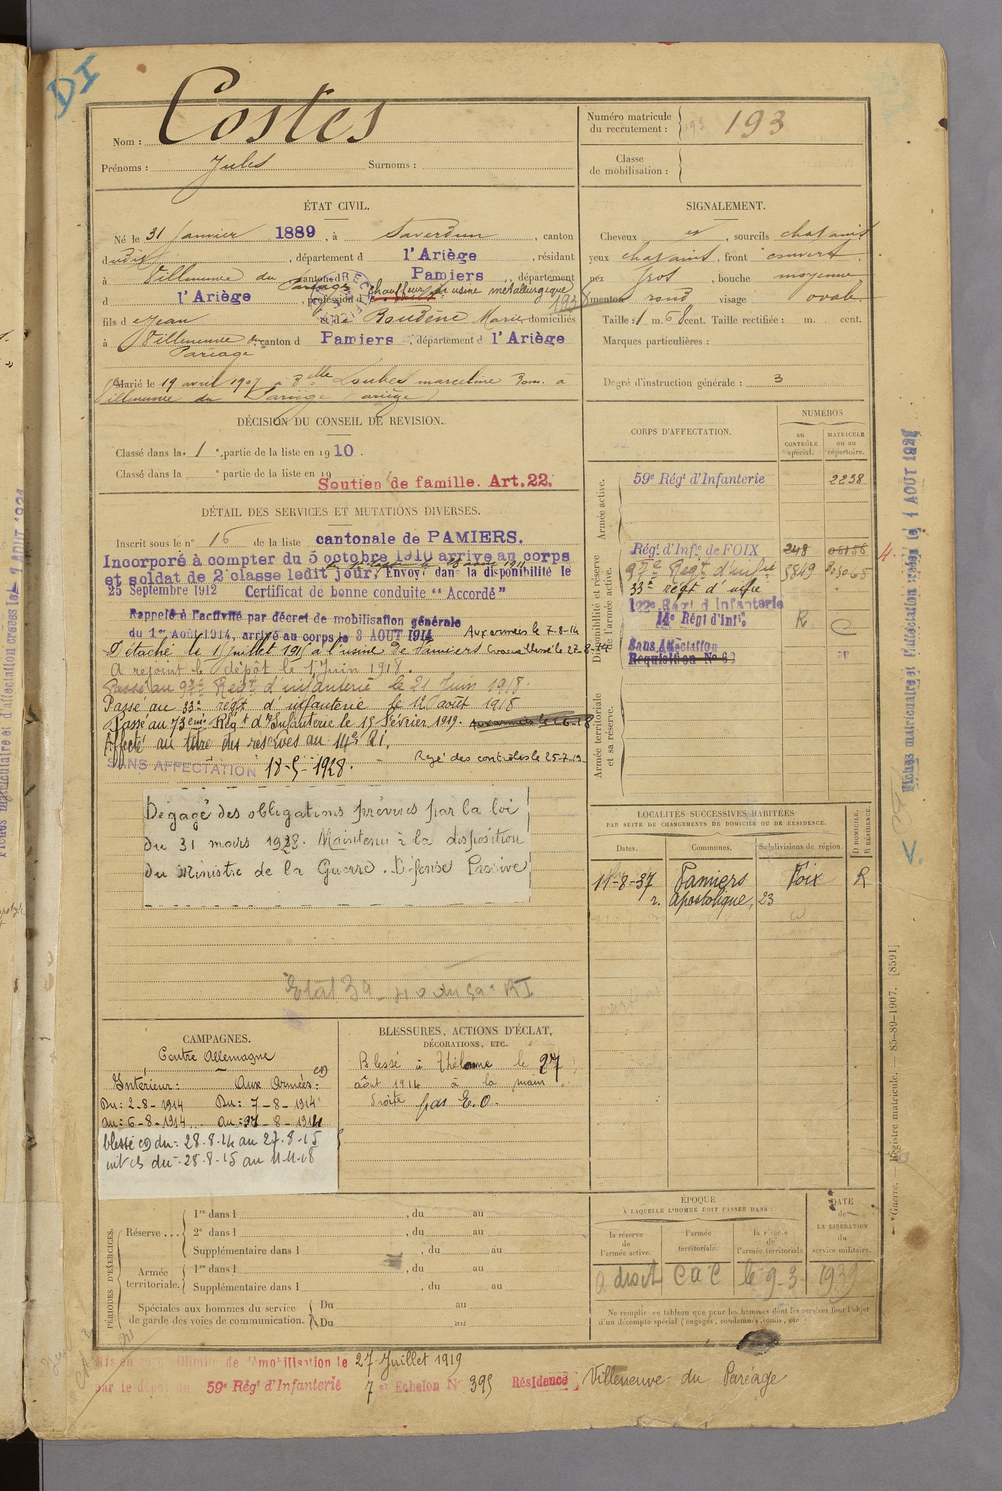 DI
Nom : Costes
Prénoms : Jules Surnoms :
Numéro matricule du recrutement : 193 193
Classe de mobilisation :
ÉTAT CIVIL.
Né le 31 Janvier 1889, à Saverdun, canton
dudit, département d l'Ariège, résidant
à Villeneuve du Paréage canton d Pamiers, département
d l'Ariège, profession d chauffeur usine métallurgique
fils d Jean et de Baudène Marie domiciliés
à Villeneuve du Pariage canton d Pamiers, département d l'Ariège
Marié le 19 avril 1907 à Delle Loubes marceline Dom. à
Villeneuve du Pariège (ariège)
SIGNALEMENT.
Cheveux et, sourcils chatains
yeux chatains, front couvert
nez gros, bouche moyenne
menton rond, visage ovale
Taille : 1 m. 68 cent. Taille rectifiée : m. cent.
Marques particulières :
Degré d'instruction générale : 3
DÉCISION DU CONSEIL DE REVISION.
Classé dans la 1re partie de la liste en 1910.
Classé dans la e partie de la liste en 19
Soutien de famille. Art. 22.
DÉTAIL DES SERVICES ET MUTATIONS DIVERSES.
Inscrit sous le n° 16 de la liste cantonale de PAMIERS.
Incorporé à compter du 5 octobre 1910 arrive au corps
et soldat de 2e classe ledit jour. Envoyé dans la disponibilité le
25 Septembre 1912 Certificat de bonne conduite "Accordé"
Rappelé à l'activité par décret de mobilisation générale
du 1er Août 1914, arrivé au corps le 3 AOUT 1914 Aux armées le 7-8-14
Détaché le 1 Juillet 1915 à l'usine de Pamiers
A rejoint le dépôt le 1 Juin 1918.
Passé au 97e Regt d'infanterie le 21 Juin 1918.
Passé au 33e regt d'infanterie le 12 août 1918
Passé au 73eme Régt d'Infanterie le 15 Février 1919.
Affecté au titre des reserves au 14e R.I.
SANS AFFECTATION 18-5-1928. Rayé des controles le 25-7-19
Dégagé des obligations prévues par la loi
du 31 mars 1928. Maintenu à la disposition
du Ministre de la Guerre. Défense Passive
CORPS D'AFFECTATION.
NUMÉROS
au CONTRÔLE spécial.
MATRICULE ou au répertoire.
Armée active.
59e Régt d'Infanterie 2258
Disponibilité et réserve de l'armée active.
Régt d'Infie de FOIX 248
97e Regt d'infie 5849
33e régt d'infie
122e Régt d'Infanterie
14e Régt d'Infie R C
Sans Affectation
Requisition No 69
Armée territoriale et sa réserve.
LOCALITÉS SUCCESSIVES HABITÉES
PAR SUITE DE CHANGEMENTS DE DOMICILE OU DE RÉSIDENCE.
Dates. Communes. Subdivisions de région. D DOMICILE. R RÉSIDENCE.
11-8-37 Pamiers Foix R
r. apostolique, 23
CAMPAGNES.
Contre Allemagne
Intérieur : Aux Armées :
Du : 2-8-1914 Du : 7-8-1914
au : 6-8-1914 au : 27-8-1914
blessé du : 28.8.14 au 27.8.15
int cs du : 28.8.15 au 11.11.18
BLESSURES, ACTIONS D'ÉCLAT,
DÉCORATIONS, ETC.
Blessé à Thélonne le 27
août 1914 à la main
droite pas E.O.
PÉRIODES D'EXERCICES.
Réserve...
1re dans l , du au
2e dans l , du au
Supplémentaire dans l , du au
Armée territoriale.
1re dans l , du au
Supplémentaire dans l , du au
Spéciales aux hommes du service
de garde des voies de communication.
Du au
Du au
ÉPOQUE
À LAQUELLE L'HOMME DOIT PASSER DANS :
la réserve de l'armée active.
l'armée territoriale.
la réserve de l'armée territoriale
DATE de LA LIBÉRATION du service militaire.
a droit C à C le 9-3-1939
Ne remplir ce tableau que pour les hommes dont les services font l'objet
d'un décompte spécial (engagés, condamnés, omis, etc
Mis en congé illimité de démobilisation le 27 Juillet 1919
par le dépôt du 59e Régt d'Infanterie 7e Echelon No 395 Résidence : Villeneuve du Paréage
Fiches matriculaire et d'affectation créées le 1 AOUT 1921
Guerre. Registre matricule. 85-89-1907. [8591]